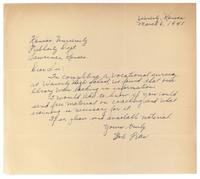 Waverly, Kansas
March 6, 1941
Kansas University
Publicity Dept.
Lawrence, Kansas
Dear Sir:
In compiling a vocational survey
at Waverly High School, we found that our
library was lacking in information.
I would like to know if you could
send free material on coaching and what
training is necessary for it.
If so, please send available material.
Yours truly
Bob